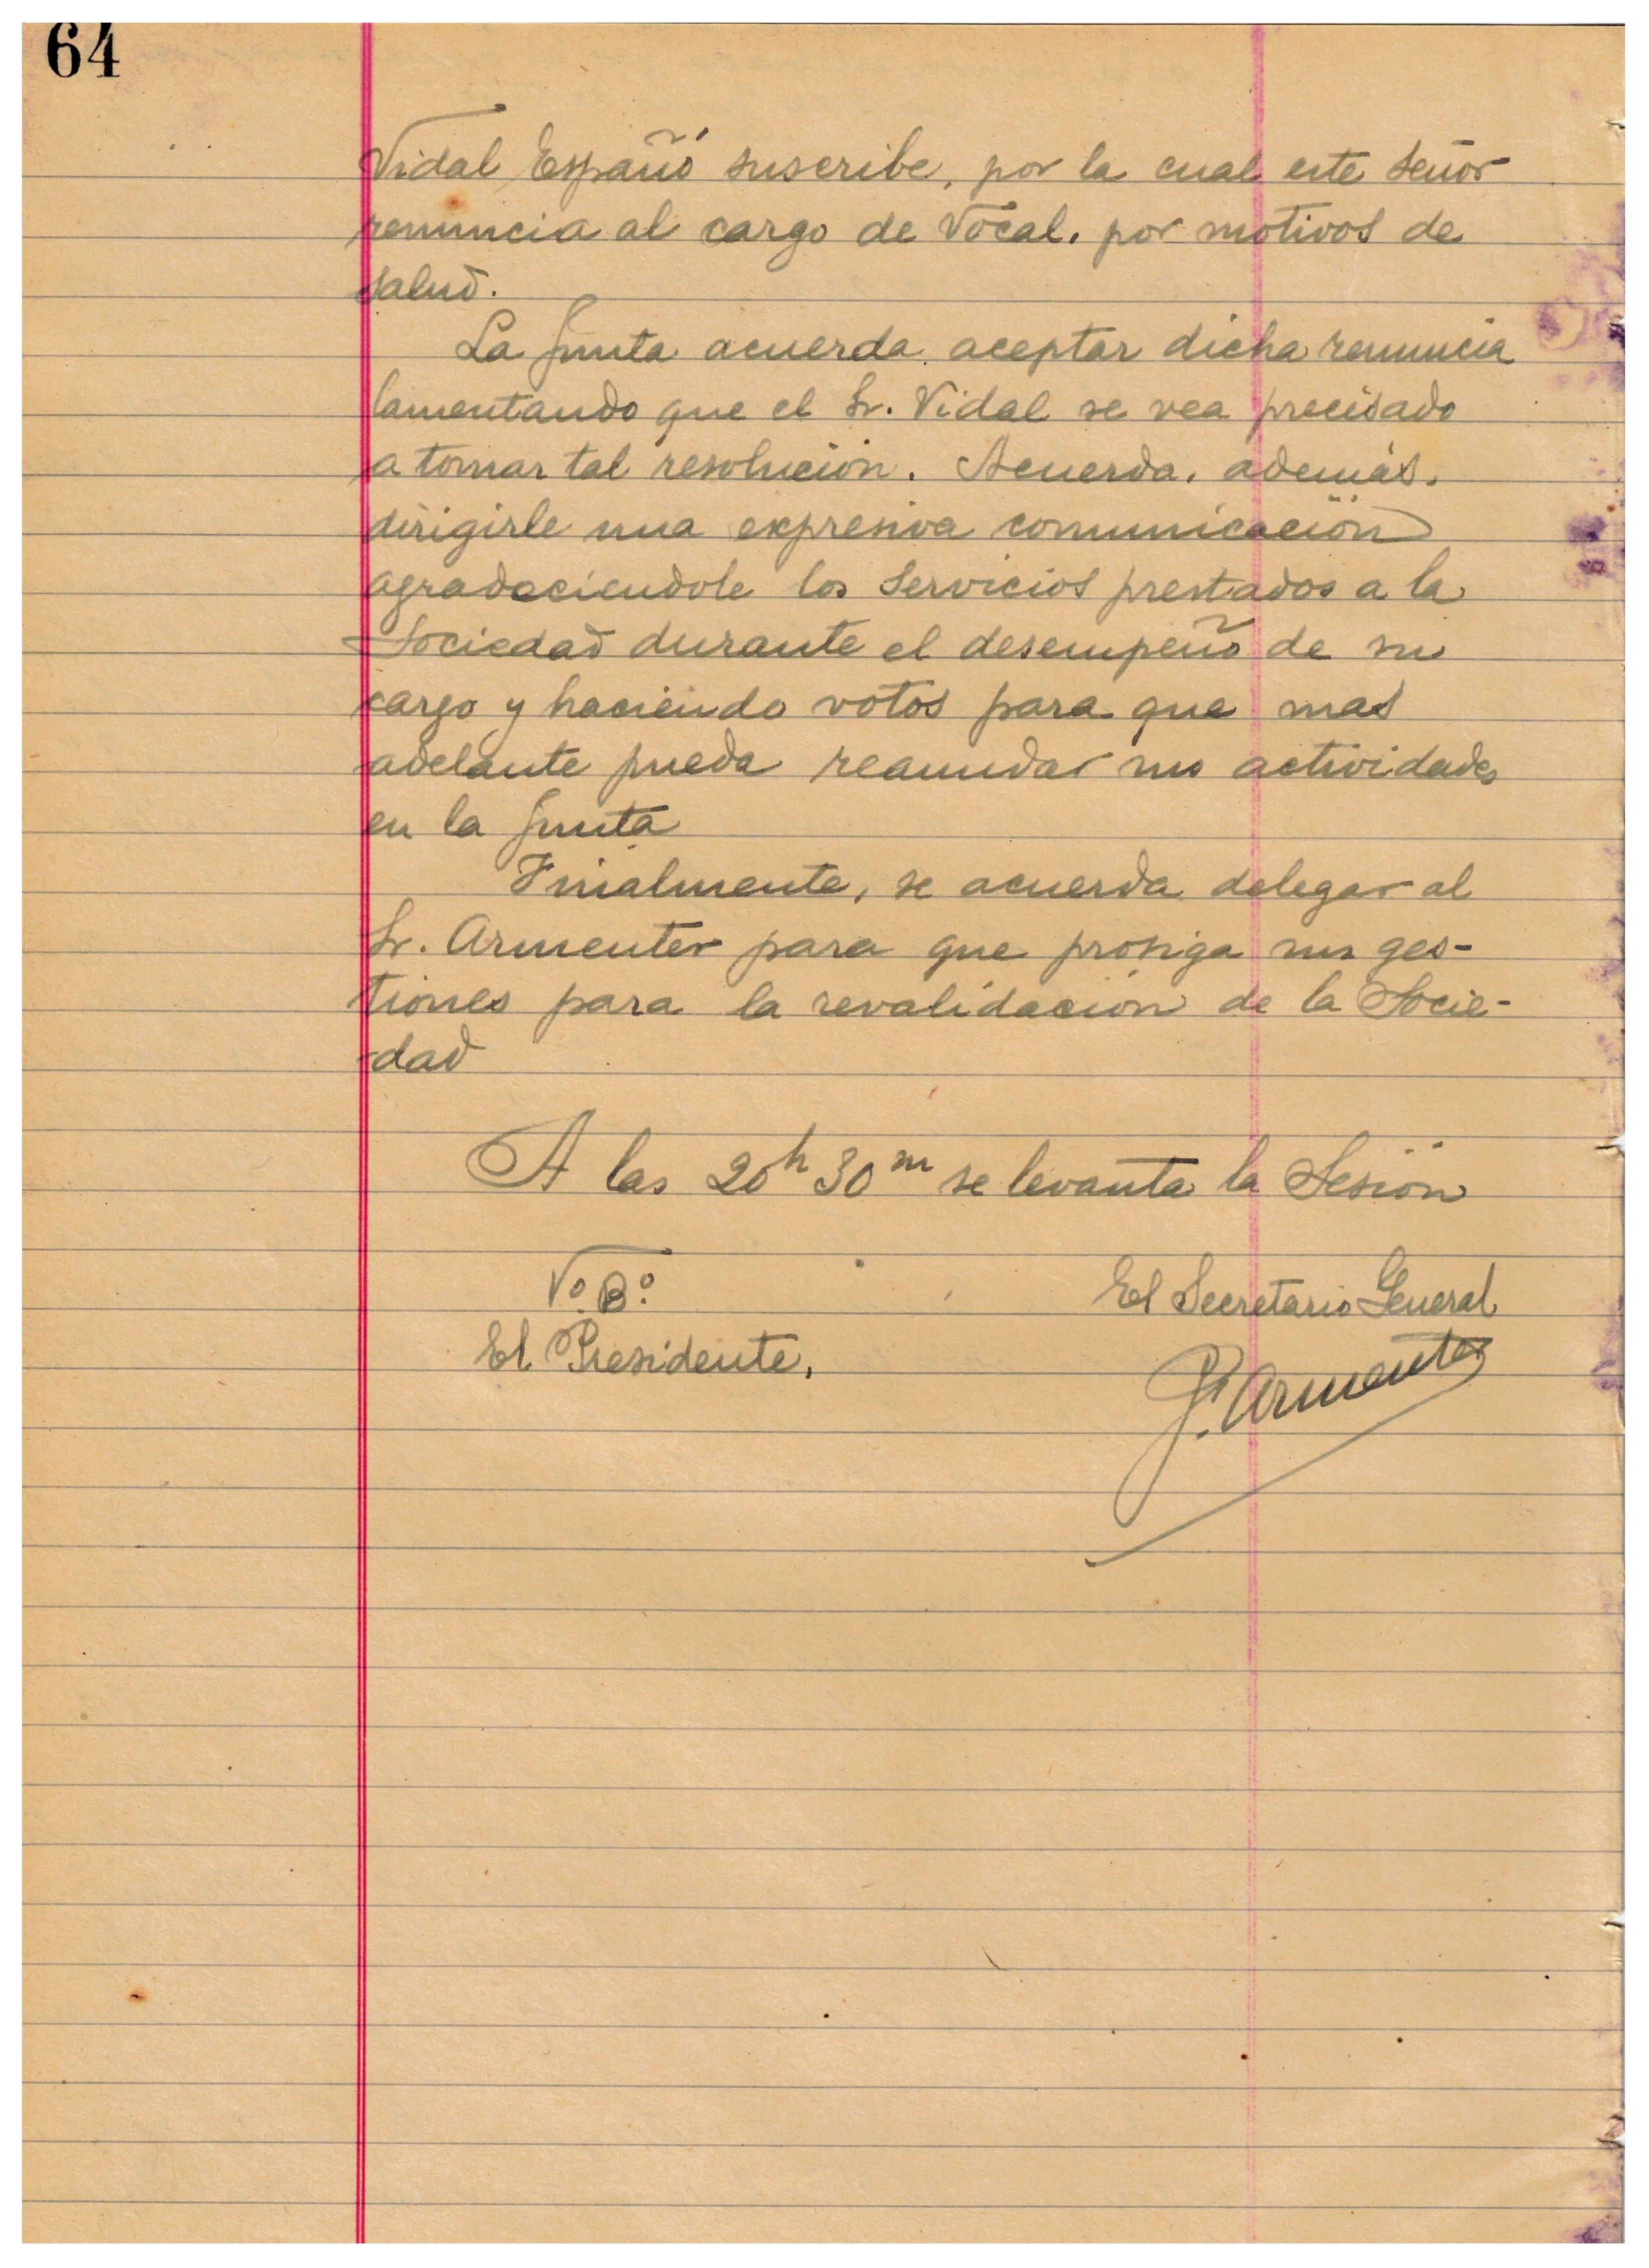 64
Vidal Españó suscribe, por la cual este señor
renuncia al cargo de Vocal, por motivos de
salud.
La Junta acuerda aceptar dicha renuncia
lamentando que el Sr. Vidal se vea precisado
a tomar tal resolución. Acuerda, además,
dirigirle una expresiva comunicación
agradeciendole los servicios prestados a la
Sociedad durante el desempeño de su
cargo y haciendo votos para que mas
adelante pueda reanudar sus actividades
en la Junta
Finalmente, se acuerda delegar al
Sr. Armenter para que prosiga sus ges-
tiones para la revalidación de la Socie-
-dad
A las 20h 30m se levanta la Sesión
Vº Bº
El Secretario General
El Presidente,
F. Armenter